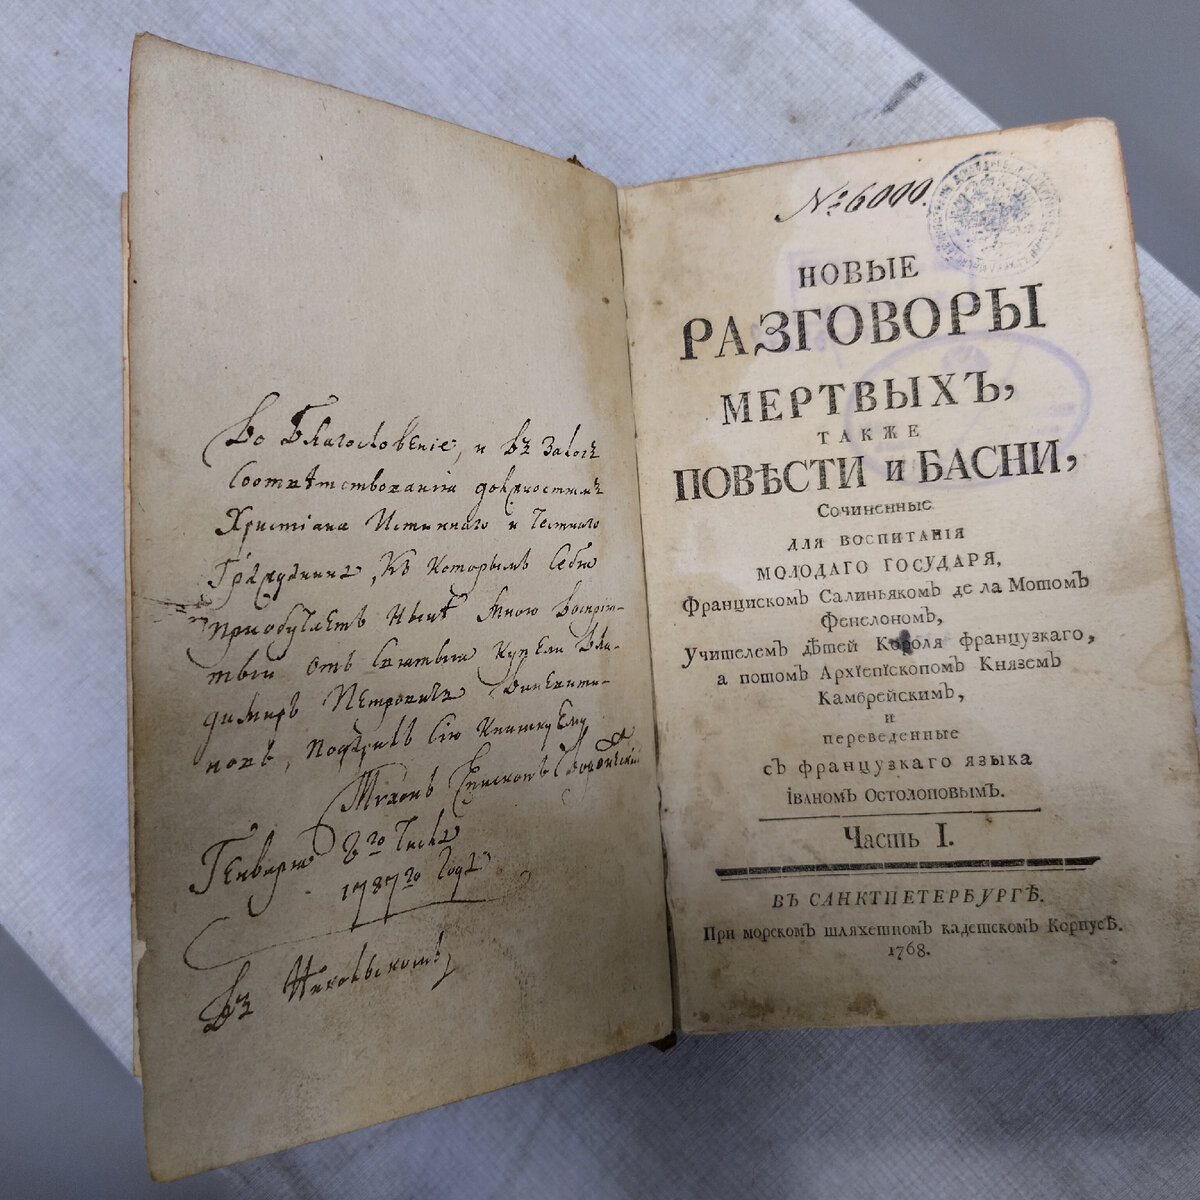 Во благословенїе, и въ залогъ
соотвѣтствованїя должностямъ
Христїана Истиннаго и Честнаго
Гражданина, къ которымъ себя
приобщаетъ нынѣ мною воспрїя-
тый отъ святыя купели Вла-
димиръ Петровичь
новъ, подарилъ сїю книшку ему
Тихонъ Епископъ
Генваря 8го числа
1787го года
въ Никольскомъ
№ 6000.
НОВЫЕ
РАЗГОВОРЫ
МЕРТВЫХЪ,
ТАКЖЕ
ПОВѢСТИ и БАСНИ,
Сочиненные
ДЛЯ ВОСПИТАНІЯ
МОЛОДАГО ГОСУДАРЯ,
Францискомъ Салиньякомъ де ла Мотомъ
Фенелономъ,
Учителемъ дѣтей Короля французкаго,
а потомъ Архїепїскопомъ Княземъ
Камбрейскимъ,
и
переведенные
съ французкаго языка
Їваномъ Остолоповымъ.
Часть I.
ВЪ САНКТПЕТЕРБУРГѢ.
При морскомъ шляхетномъ кадетскомъ Корпусѣ.
1768.